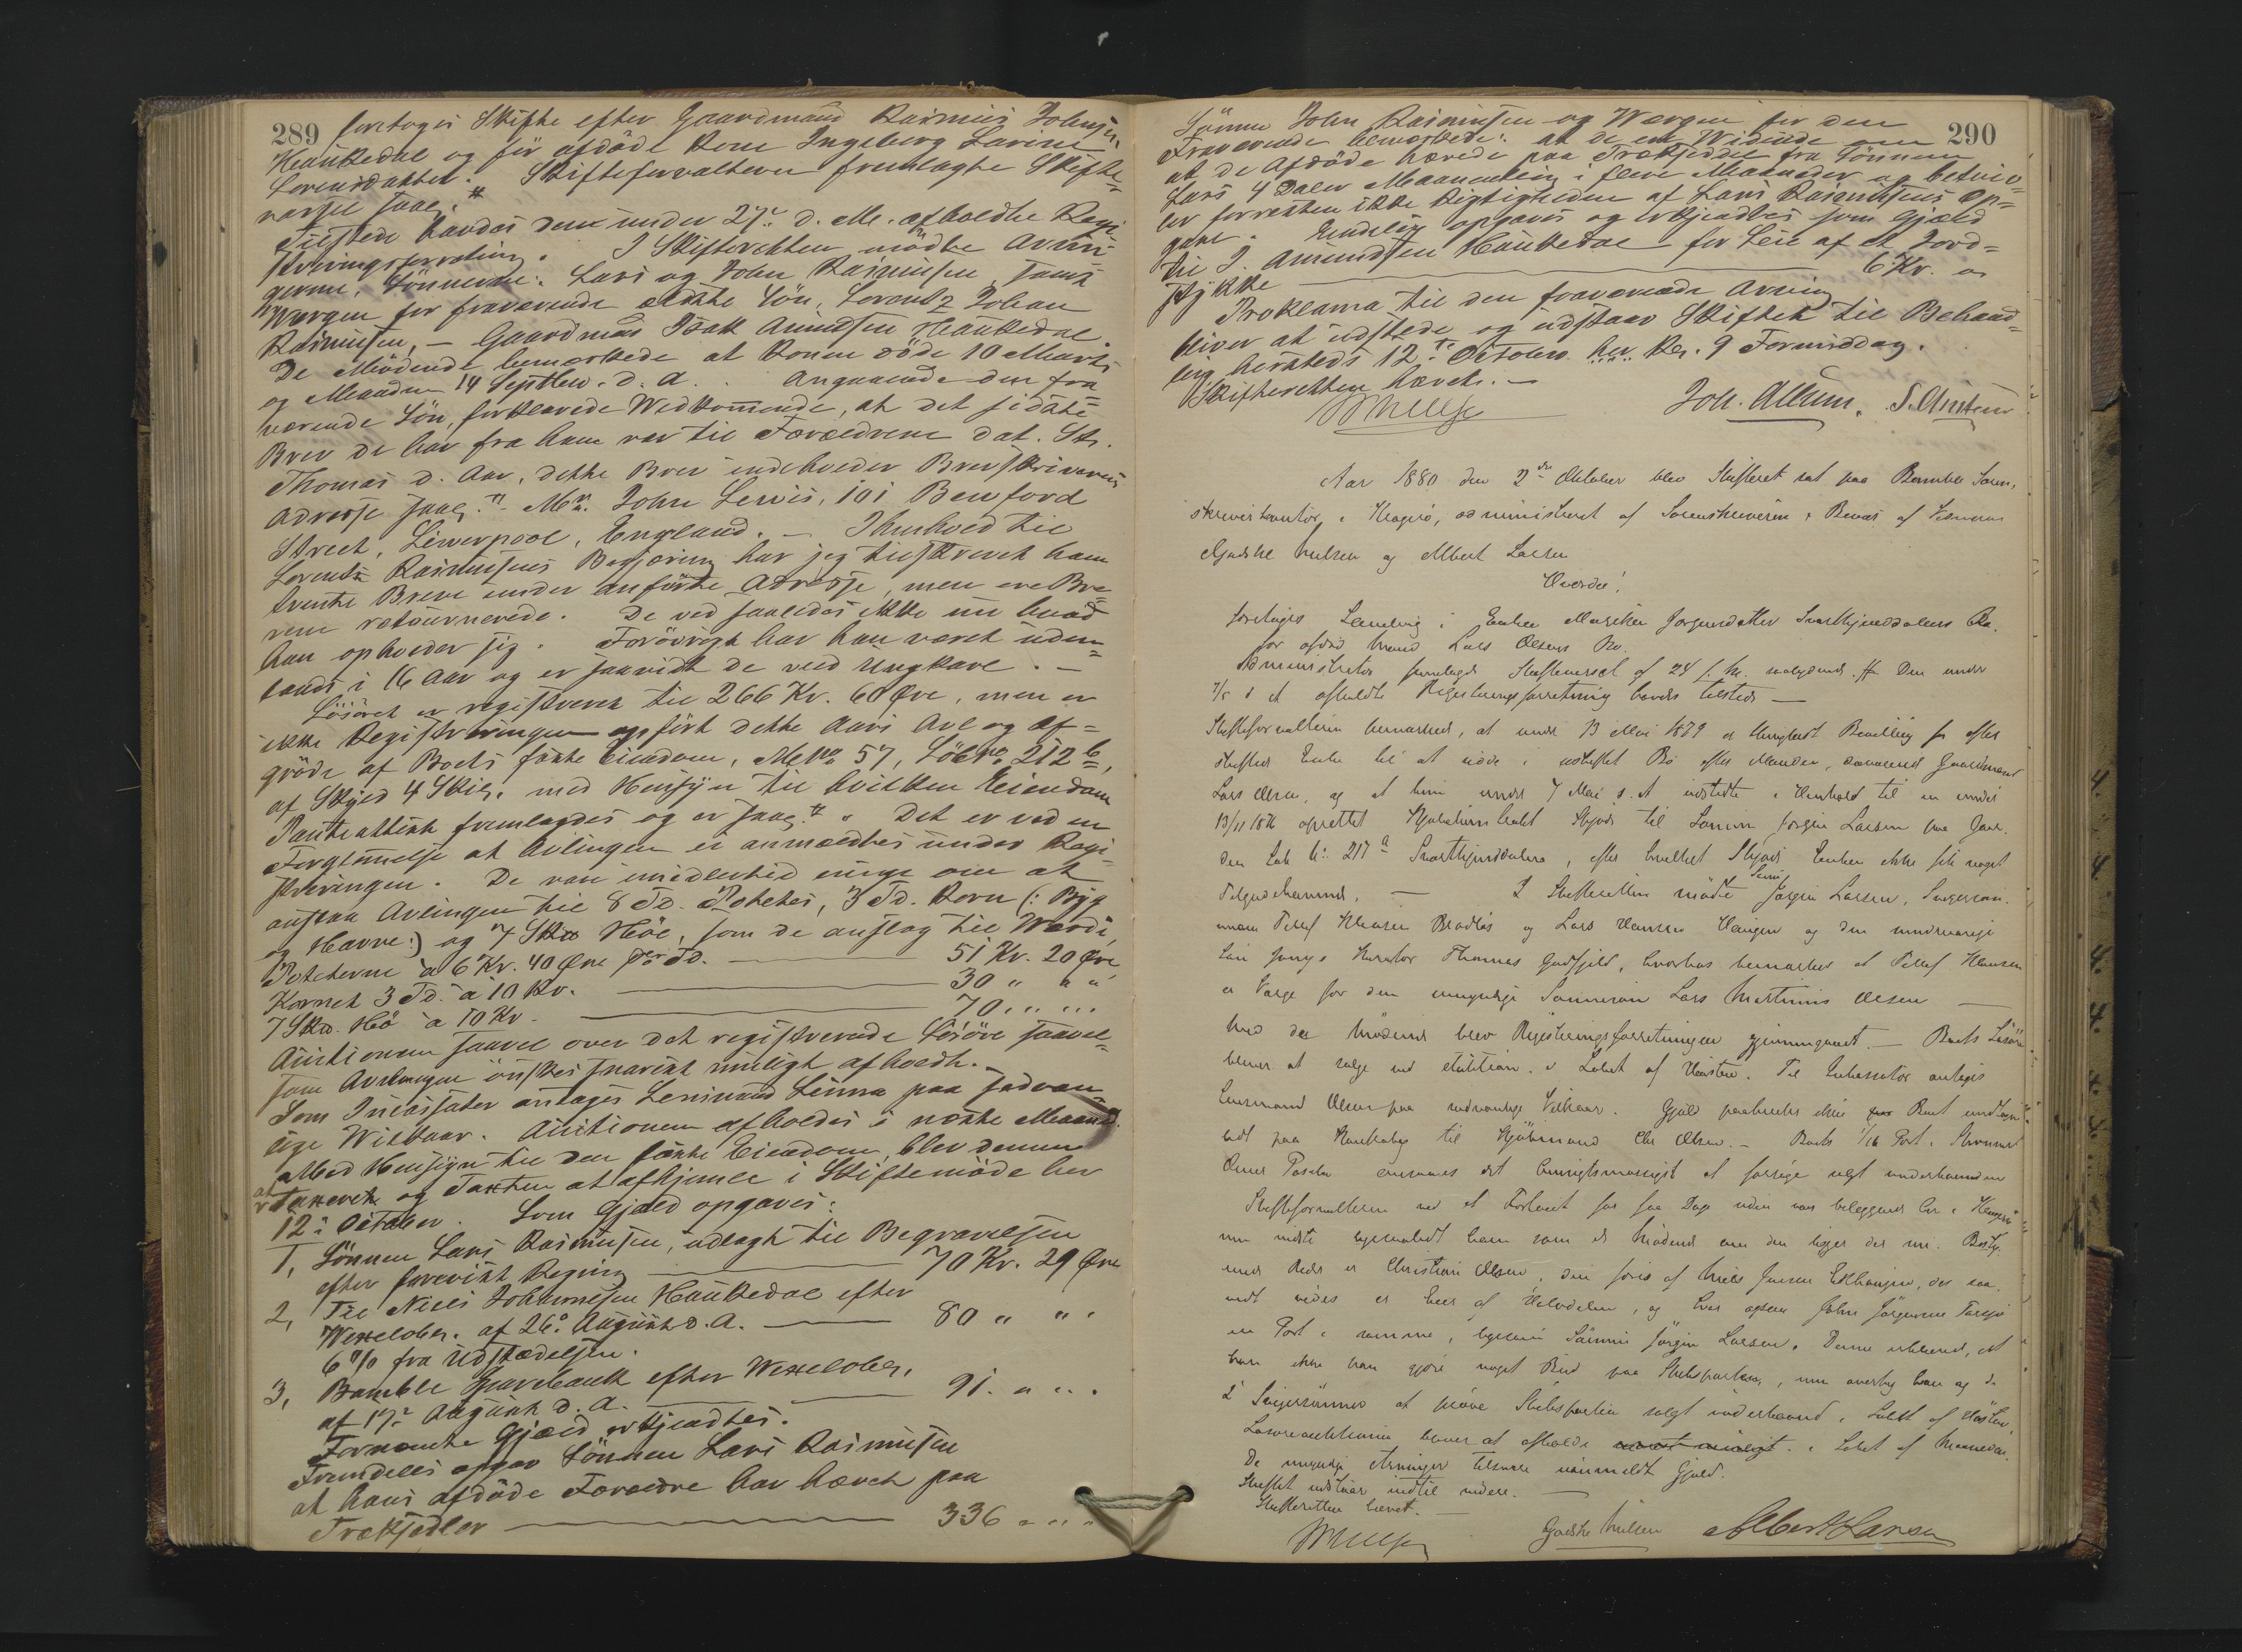 289
foretoges Skifte efter Gaardmand Rasmus Johnsen
Haukedal og før afdøde Kone Ingeborg Lavine
Lorensdatter. Skifteforvalteren fremlagte Skifte=
varsel saal. #
Tilstede havdes den under 27de d. M. afholdte Regi=
streringsforretning. I Skifteretten mødte Arvin=
gerne, Sønnerne: Lars og John Rasmusen, samt
Værgen for fraværende ældste Søn, Lorentz Johan
Rasmusen, – Gaardmand Isak Amundsen Haukedal.
De Mødende bemærkede at Konen døde 10 Marts
og Manden 14 Septbr. d. A. Angaaende den fra=
værende Søn, forklarede Vedkommende, at det sidste
Brev de har fra ham var til Forældrene dat. St.
Thomas d. Aar, dette Brev indeholder Brevskriverens
Adresse saal. # Mr. John Lewis, 101 Benford
Street, Liverpool, England. – I Henhold til
Lorentz Rasmusens Begjæring har jeg tilskrevet ham
trende Breve under anførte Adresse, men ere Bre=
vene retournerede. De ved saaledes ikke nu hvad
han opholder sig. Forøvrigt har han været uden=
lands i 16 Aar og er saavidt de veed Ungkarl. –
Løsøret er registreret til 266 Kr. 60 Øre, men er
ikke Registreringen opført dette Aars Avl og Af=
grøde af Boets faste Eiendom, M No 57, Løb No 212 b,
af Skyld 4 Skil. med Hensyn til hvilken Eiendom
Panteattest fremlagdes og er saal. # Det er ved en
Forglemmelse at Avlingen ei anmeldtes under Regi=
streringen. De var imidlertid enige om at
anslaa Avlingen til 8 Td. Poteter, 3 Td. Korn (: Byg
og Havre:) og 7 Sk℔ Høe, som de anslog til Værdi,
Poteterne à 6 Kr. 40 Øre pr. Td. 51 Kr. 20 Øre
Kornet 3 Td. à 10 Kr. 30 " " "
7 Sk℔. Hø à 10 Kr. 70 " " "
Auctionen saavel over det registrerede Løsøre saavel=
som Avlingen ønskes snarest muligt afholdt. –
Som Incassator antages Lensmand Linna paa sedvan=
lige Vilkaar. Auctionen afholdes i næste Maaned.
Med Hensyn til den faste Eiendom, blev denne
at taxeret og Taxten at afhjemle i Skiftemøde her
12te October. Som Gjæld opgaves:
1, Sønnen Lars Rasmusen, udlagt til Begravelsen
efter forevist Regning 70 Kr. 29 Øre
2, Til Niels Johannesen Haukedal efter
Vexelobl. af 26de August d. A. 80 " " "
6 % fra Udstædelsen.
3, Bamble Sparebank efter Vexelobl.
af 17de August d. A. 91. " " "
Fornævnte Gjæld erkjendtes.
Fremdeles opgav Sønnen Lars Rasmusen
at hans afdøde Forældre har hævet paa
Træksedler 336 " " "
290
Sønnen John Rasmusen og Værgen for den
Fraværende bemærkede: at de er Vidende om
at de Afdøde hævede paa Træksedel fra Sønnen
Lars 4 Daler Maanedlig i flere Maaneder og betviv=
ler forresten ikke Rigtigheden af Lars Rasmusens Op=
gave. Endelig opgaves og erkjendtes som Gjæld
til I. Amundsen Haukedal for Leie af et Jord=
stykke 6 Kr. "
Proklama til den fraværende Arving
bliver at udstede og udstaar Skiftet til Behand=
ling hersteds 12te October her Kl. 9 Formiddag.
Skifteretten hævet. –
Joh. Allum.
Aar 1880 den 2den Oktober blev Skifteret sat paa Bamble Soren=
skriverkontor i Kragerø, administreret af Sorenskriveren i Bevær af Vidnerne
Gjødske Nielsen og Albert Larsen
Hvorda:
foretoges Samling i Enken Jørgensdatter Svartkjenddalens Bo.
før afdød Mand Lars Olsens Bo.
Administrator fremlagde Skiftevarsel af 24 f. M. saalydende # Den under
7/5 d A afholdte Registreringsforretning havdes tilstede –
Skifteforvalteren bemærkede, at under 13 Mai 1879 er Bevilling for efter
Enke til at sidde i uskiftet Bo efter Manden, Gaardmand
Lars Olsen, og at hun under 7 Mai d. A. i Henhold til en under
oprettet Skjøde til Sønnen Jørgen Larsen paa Gaar=
den Løb No 217 a Svartkjenddalen, efter hvilket Skjøde Enken ikke fik noget
Tilgodehavende. – I Skifteretten mødte Sønnen Jørgen Larsen, Svigersøn=
nerne Tellef Klausen Bradløs og Lars Hansen Haugen og den mindreaarige
Søn Kurator Thomas Godfjeld, hvorhos bemærkes at Tellef Klausen
er Værge for den umyndige Sønnesøn Lars Martinius Olsen –
Med de Mødende blev Registreringsforretningen gjennemgaaet. – Boets Løsøre
bliver at sælge ved Auktion i Løbet af Høsten. Til Inkassator antages
Lensmand Olsen paa sædvanlige Vilkaar. Gjæld paahviler ikke Boet undtagen
lidt paa til Kjøbmand Olsen. – Boets 1/16 Part i
ansaaes det hensigtsmæssigst at forsøge solgt underhaanden
Skifteforvalteren ved et for faa Dage siden var beliggende her i Kragerø
Rheder er Christian Olsen, den føres af Niels Jensen, der saa=
vidt vides er Eier af Halvdelen, og hver John Jørgensen
en Part i samme, ligesaa Sønnen Jørgen Larsen. Denne erklærede, at
han ikke kan gjøre noget Bud paa Skibsparten, men overtog han og de
2 Svigersønner at prøve Skibsparten solgt underhaand i Løbet af Høsten.
Løsøreauktionen bliver at afholde i Løbet af Maaneden.
De myndige Arvinger tilsvare uanmeldt Gjæld.
Skiftet udstaar indtil videre.
Skifteretten hævet. –
Gjødske Nielsen Albert Larsen